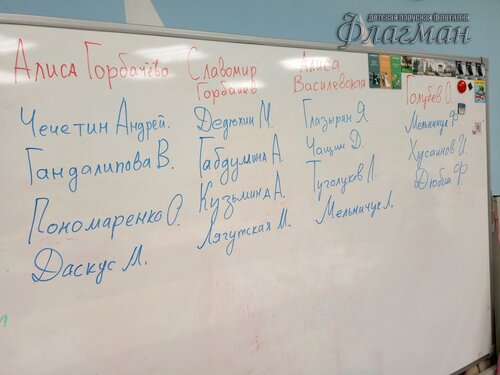 детская парусная флотилия
Флагман
Алиса Горбачёво
Чечетин Андрей.
Гандалипова В.
Пономаренко О.
Даскус М.
Славомир
Горбачев
Дедюхин М.
Габдулина А.
Кузьмина А.
Лягутская М.
Алиса
Василевская
Глазырин Я
Чащин Д.
Туголуков Л.
Мельничук Л.
Голубев О.
Мельничук Ф
Хусаинов И.
Дюбин Ф.